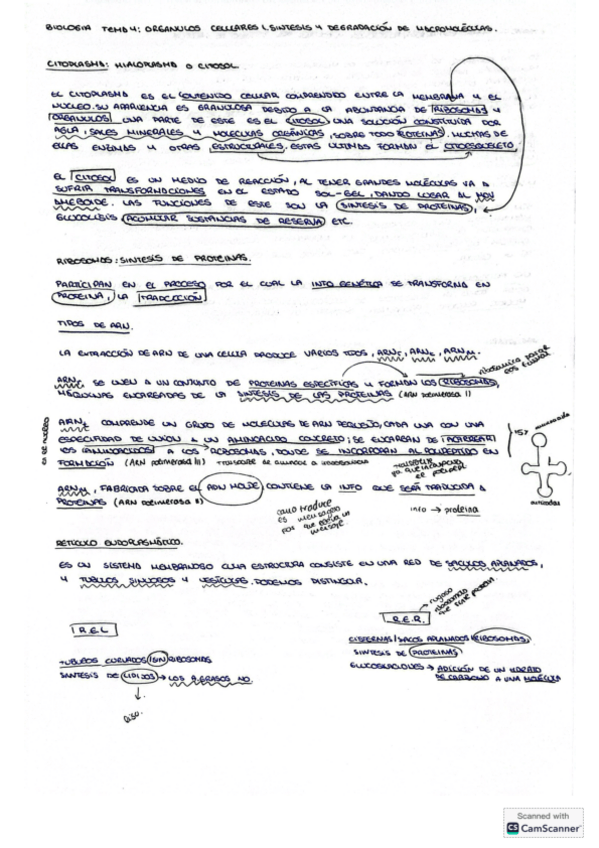 BIOLOGIA TEMA 4: ORGANULOS CELULARES I, SINTESIS Y DEGRADACIÓN DE MACROMOLÉCULAS.
CITOPLASMA: HIALOPLASMA O CITOSOL.
EL CITOPLASMA ES EL CONTENIDO CELULAR COMPRENDIDO ENTRE LA MEMBRANA Y EL
NUCLEO. SU APARIENCIA ES GRANULOSA DEBIDO A LA ABUNDANCIA DE RIBOSOMAS Y
ORGANULOS. UNA PARTE DE ESTE ES EL CITOSOL UNA SOLUCIÓN CONSTITUIDA POR
AGUA, SALES MINERALES Y MOLECULAS ORGÁNICAS, SOBRE TODO PROTEINAS. MUCHAS DE
ELLAS ENZIMAS Y OTRAS ESTRUCTURALES. ESTAS ULTIMAS FORMAN EL CITOESQUELETO.
EL CITOSOL ES UN MEDIO DE REACCIÓN, AL TENER GRANDES MOLÉCULAS VA A
SUFRIR TRANSFORMACIONES EN EL ESTADO SOL-GEL, DANDO LUGAR AL MOV
AMEBOIDE. LAS FUNCIONES DE ESTE SON LA SINTESIS DE PROTEINAS,
GLUCOLISIS ACUMULAR SUSTANCIAS DE RESERVA ETC.
RIBOSOMAS: SINTESIS DE PROTEINAS.
PARTICIPAN EN EL PROCESO POR EL CUAL LA INFO GENÉTICA SE TRANSFORMA EN
PROTEINA, LA TRADUCCIÓN
TIPOS DE ARN.
LA EXTRACCIÓN DE ARN DE UNA CELULA PRODUCE VARIOS TIPOS, ARNr, ARNt, ARNm.
ARNr SE UNEN A UN CONJUNTO DE PROTEINAS ESPECÍFICAS Y FORMAN LOS RIBOSOMAS,
MÁQUINAS ENCARGADAS DE LA SINTESIS DE LAS PROTEINAS (ARN polimerasa I)
ARNt COMPRENDE UN GRUPO DE MOLECULAS DE ARN PEQUEÑO, CADA UNA CON UNA
ESPECIFIDAD DE UNION A UN AMINOACIDO CONCRETO; SE ENCARGAN DE ACARREAR
LOS AMINOACIDOS A LOS RIBOSOMAS, DONDE SE INCORPORAN AL POLIPEPTIDO EN
FORMACIÓN (ARN polimerasa III)
transfiere
ARNm, FABRICADA SOBRE EL ADN MOLDE, CONTIENE LA INFO QUE SERÁ TRADUCIDA A
PROTEINAS (ARN polimerasa II)
como traduce
es mensajero
por que envia un
mensaje
info → proteina
RETICULO ENDOPLASMÁTICO.
ES UN SISTEMA MEMBRANOSO CUYA ESTRUCTURA CONSISTE EN UNA RED DE SACULOS APLANADOS,
Y TUBULOS SINUOSOS Y VESÍCULAS. PODEMOS DISTINGUIR.
R.E.L
TUBULOS CURVADOS SIN RIBOSOMAS
SINTESIS DE LIPIDOS → LOS A.GRASOS NO.
R.E.R.
rugoso
CISTERNAS / SACOS APLANADOS RIBOSOMAS,
SINTESIS DE PROTEINAS
GLUCOSILACIONES → ADICIÓN DE UN HIDRATO
DE CARBONO A UNA MOLÉCULA
Scanned with
CS CamScanner